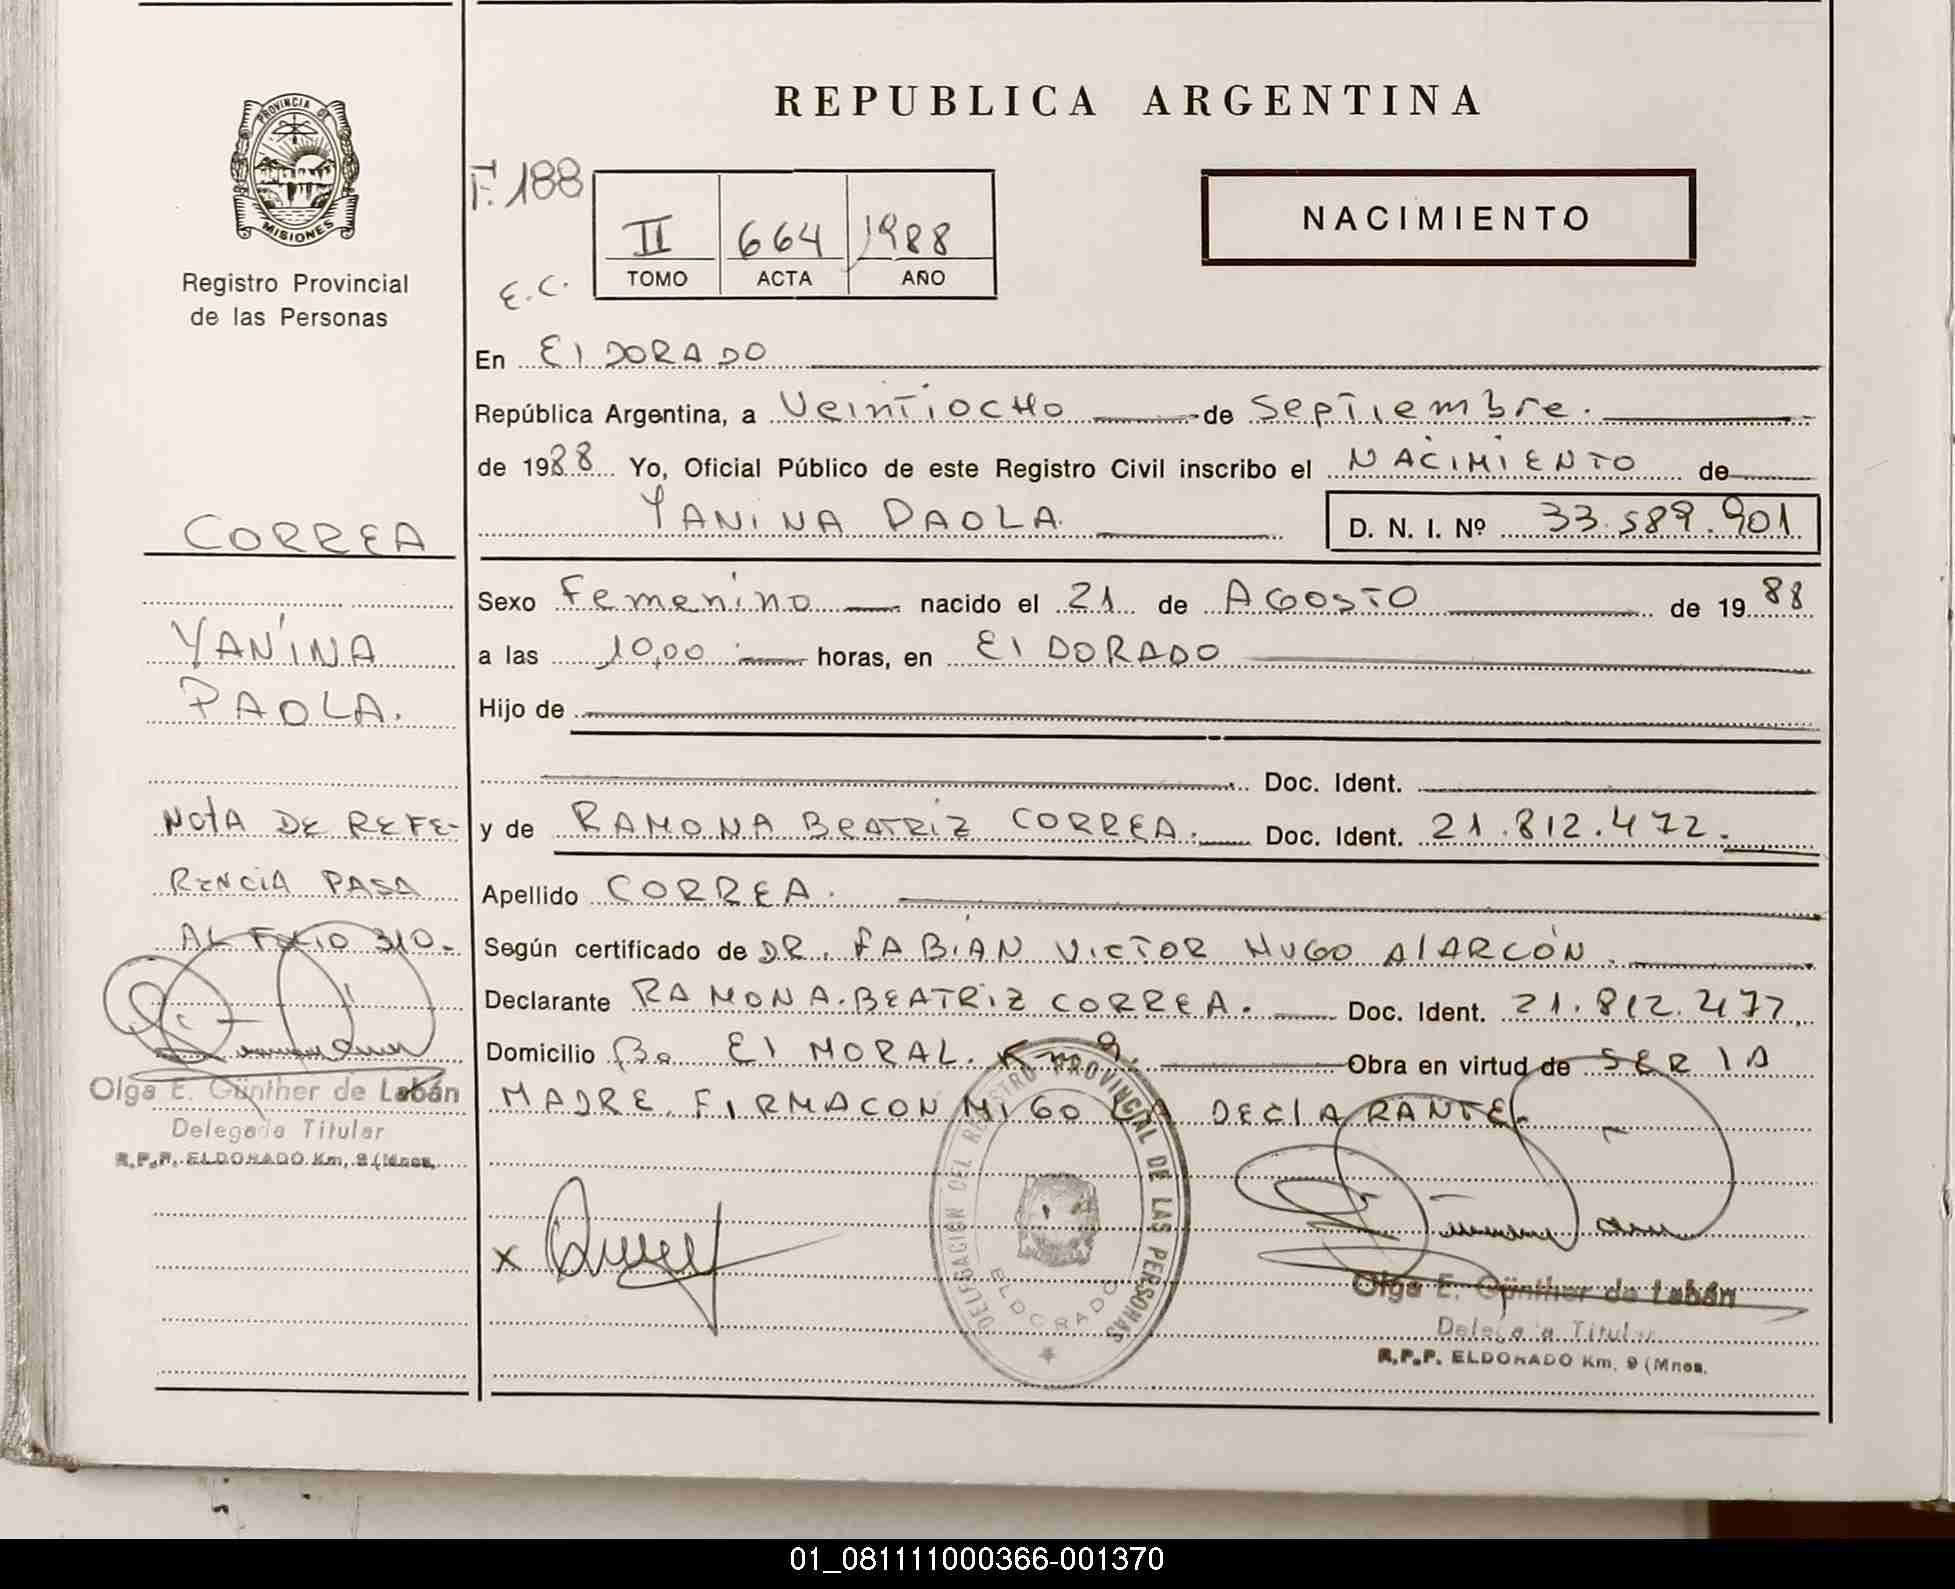 REPUBLICA ARGENTINA
PROVINCIA DE
MISIONES
Registro Provincial
de las Personas
F. 188
E.C.
II 664 1988
TOMO ACTA AÑO
NACIMIENTO
En ElDORADO
República Argentina, a Veintiocho de Septiembre.
de 1988 Yo, Oficial Público de este Registro Civil inscribo el NACIMIENTO de
YANINA PAOLA. D. N. I. Nº 33.589.901
CORREA
Sexo Femenino nacido el 21 de AGOSTO de 1988
YANINA
a las 10,00 horas, en El DORADO
PAOLA.
Hijo de
Doc. Ident.
NOTA DE REFE-
y de RAMONA BEATRIZ CORREA. Doc. Ident. 21.812.472.
RENCIA PASA
Apellido CORREA.
AL FOLIO 310.-
Según certificado de DR. FABIÁN VICTOR HUGO AlARCÓN.
Declarante RAMONA.BEATRIZ CORREA. Doc. Ident. 21.812.472.
Domicilio Bo El MORAL. Km 9. Obra en virtud de SER lA
MADRE. FIRMA CON MIGO LA DEClARANTE.
Olga E. Günther de Labán
Delegada Titular
R.P.P. ELDORADO Km. 9 (Mnes.
x
DELEGACION DEL REGISTRO PROVINCIAL DE LAS PERSONAS
ELDORADO
Olga E. Günther de Labán
Delegada Titular
R.P.P. ELDORADO Km. 9 (Mnes.
01_081111000366-001370